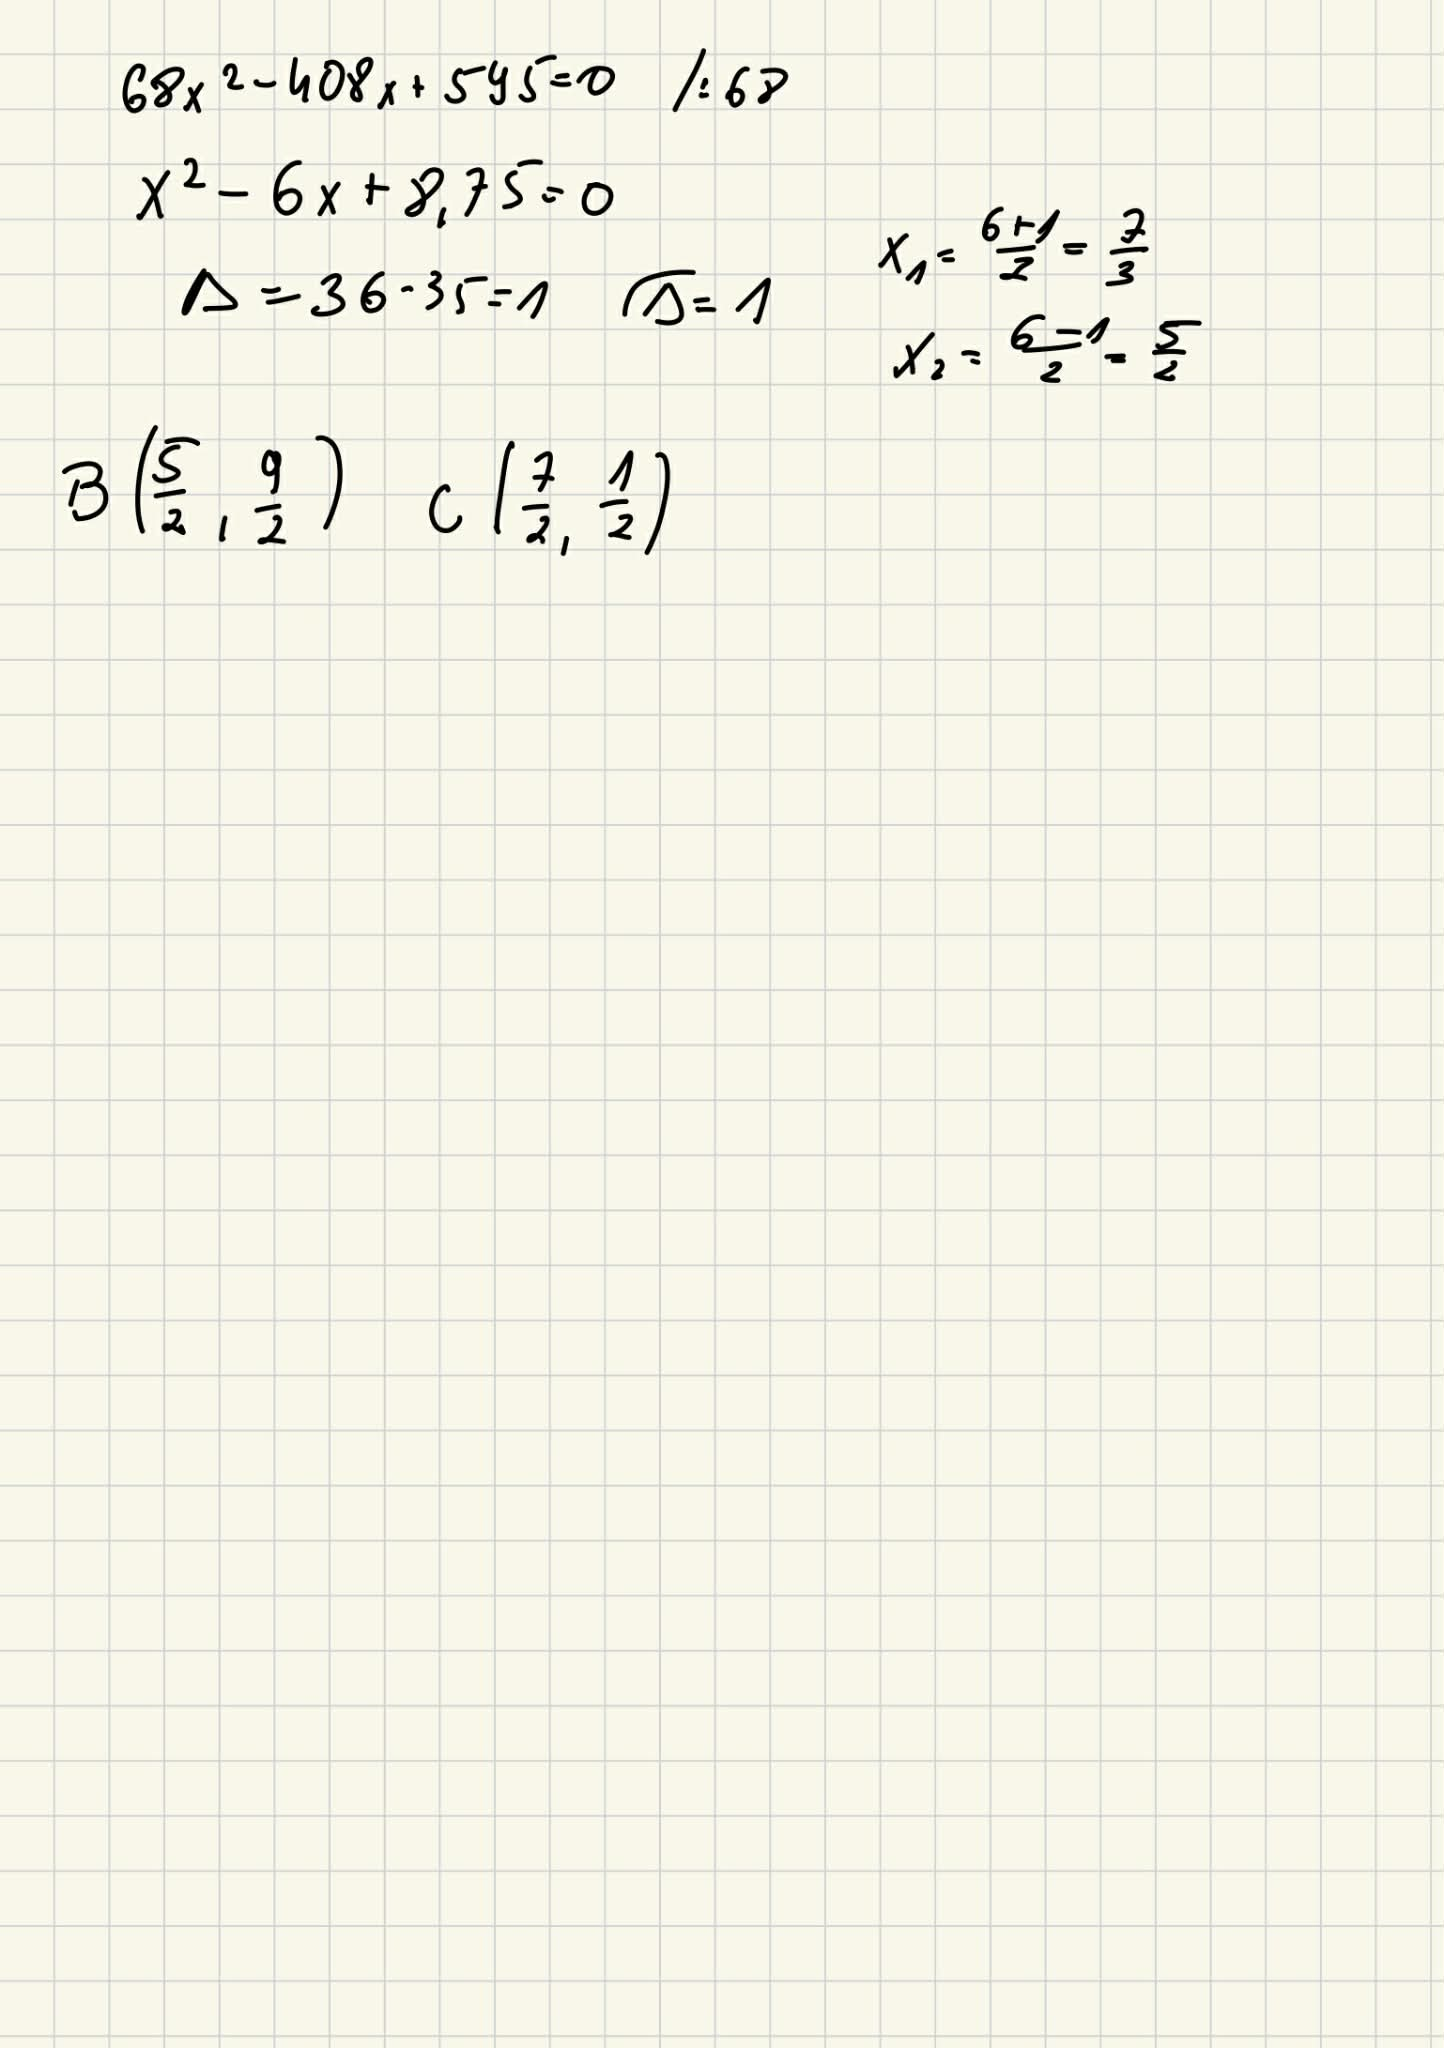 68x² - 408x + 595 = 0 /:68
x² - 6x + 8,75 = 0
Δ = 36 - 35 = 1 √Δ = 1
x₁ = (6+1)/2 = 7/3
x₂ = (6-1)/2 = 5/2
B (5/2, 9/2) C (7/2, 1/2)